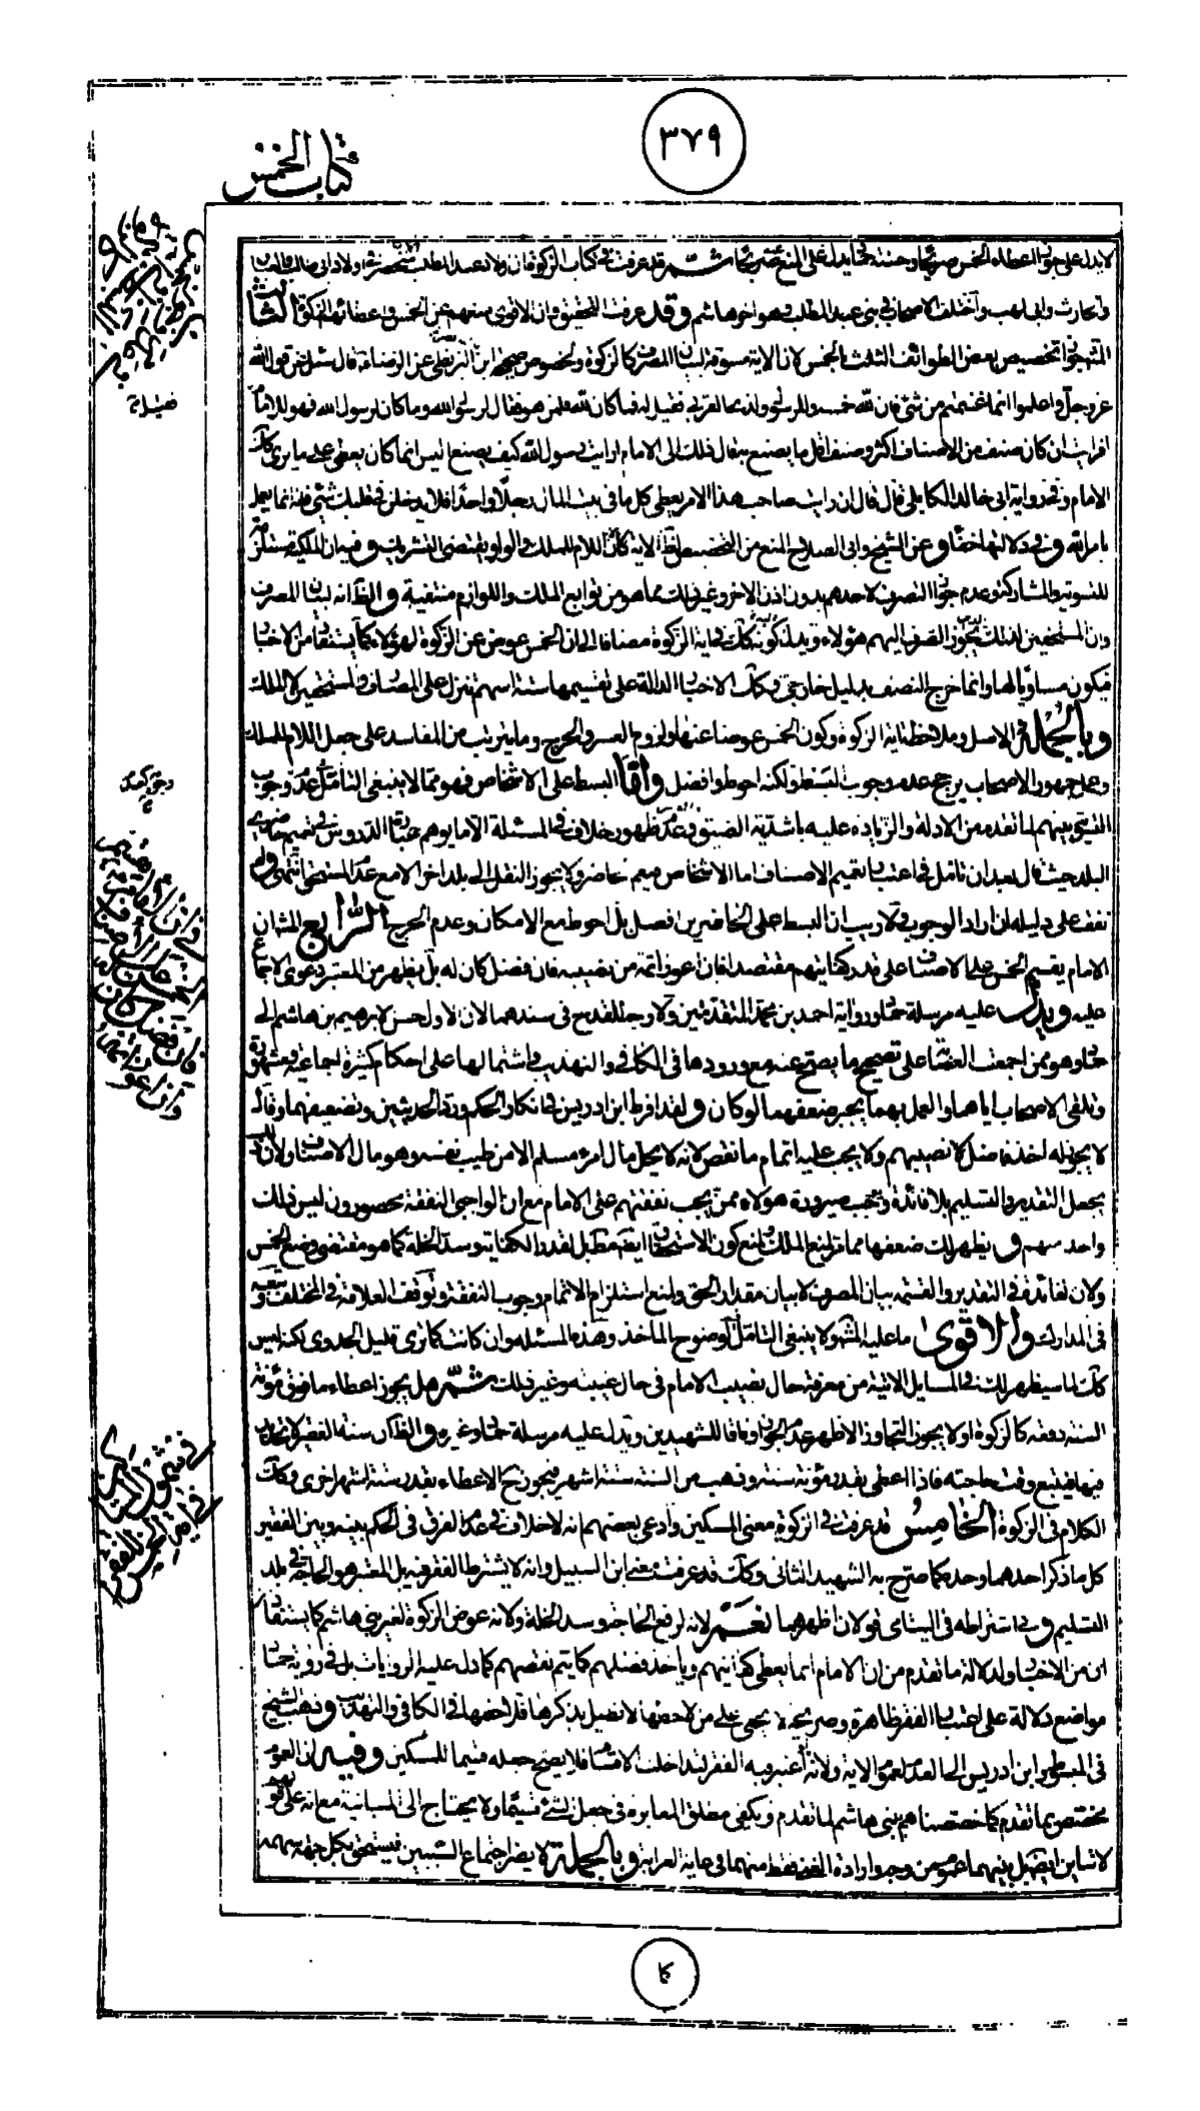 ٣٧٩
كتاب الخمس
لا يدل على جواز اعطاء الخمس صريحا وحسنة حماد يدل على المنع صريحا ثم قد عرفت في كتاب الزكوة ان ولد عبد المطلب منحصر في ولد ابي طالب والعباس
والحارث وابي لهب واختلف الاصحاب في بني عبد المطلب وهو اخو هاشم وقد عرفت التحقيق وان الاقوى منعهم عن الخمس واعطائهم الزكوة الثالث
المشهور جواز تخصيص بعض الطوائف الثلث بالخمس لان الاية مسوقة لبيان المصرف كالزكوة ولخصوص صحيحة ابن ابي نصر البزنطي عن الرضاء قال سئل عن قول الله
عز وجل واعلموا انما غنمتم من شئ فان لله خمسه وللرسول ولذي القربى فقيل له فما كان لله فلمن هو فقال لرسول الله وما كان لرسول الله فهو للامام
افرايت ان كان صنف من الاصناف اكثر وصنف اقل ما يصنع به قال ذلك الى الامام ارايت رسول الله كيف يصنع اليس انما كان يعطى على ما يرى كذلك
الامام وفي رواية ابي خالد الكابلي قال قال ان رايت صاحب هذا الامر يعطى كل ما في بيت المال رجلا واحدا فلا يدخلن في قلبك شئ فانه انما يعمل
بامر الله وفي دلالتها خفاء وعن الشيخ وابي الصلاح المنع من التخصيص لظاهر الاية لان اللام للملك والواو يقتضى التشريك وفيه ان الملكية مستلزمة
للتسوية والمشاركة وعدم جواز التصرف لاحدهم بدون اذن الاخر وغير ذلك مما هو من توابع الملك واللوازم منتفية والظ انه لبيان المصرف
وان المستحقين لذلك يجوز الصرف اليهم هؤلاء ويدل كونه كك في اية الزكوة مضافا الى ان الخمس عوض عن الزكوة لهؤلاء كما يستفاد من الاخبار
فيكون مساويا لها وانما خرج النصف بدليل خارجي وكذلك الاخبار الدالة على تقسيمها ستة اسهم تنزل على المصارف والمستحقين لا الملك
وبالجملة الاصل وملاحظة اية الزكوة وكون الخمس عوضا عنها ولزوم العسر والحرج وما يترتب من المفاسد على جعل اللام للملك
وعمل جمهور الاصحاب يرجح عدم وجوب البسط ولكنه احوط وافضل واما البسط على الاشخاص فهو مما لا ينبغى التامل في عدم وجوب
التسوية بينهم لما تقدم من الادلة والزيادة عليه باشدية الضيق وعدم ظهور خلاف في المسئلة الا ما يوهم عبارة الدروس في تعميم حاضري
البلد حيث قال بعد ان تامل في اعتبار تعميم الاصناف اما الاشخاص فيعم الحاضر ولا يجوز النقل الى بلد اخر الا مع عدم المستحق انتهى ولم
نقف على دليله ان اراد الوجوب ولا ريب ان البسط على الحاضرين افضل بل احوط مع الامكان وعدم الحرج الرابع المشهور ان
الامام يقسم الخمس على الاصناف على قدر كفايتهم مقتصدا فان اعوز اتمه من نصيبه فان فضل كان له بل يظهر من المعتبر دعوى الاجماع
عليه ويدل عليه مرسلة حماد ورواية احمد بن محمد المتقدمتين ولا وجه للقدح في سندهما لان الاول حسن لابرهيم بن هاشم الى
حماد وهو ممن اجمعت العصابة على تصحيح ما يصح عنه مع ورودها في الكافي والتهذيب واشتمالها على احكام كثيرة اجماعية ومشهورة
وتلقى الاصحاب اياهما والعمل بهما يجبر ضعفهما لو كان ولقد افرط ابن ادريس في انكار الحكم ورد الحديثين وتضعيفهما وقال
لا يجوز له اخذ فاضل لا نصيبهم ولا يجب عليه اتمام ما نقص لانه لا يحل مال امرء مسلم الا من طيب نفسه وهو مال الاصناف ولان ذلك
يجعل التقدير والتسليم بلا فائدة وتجب صيرورة هؤلاء ممن يجب نفقتهم على الامام مع ان الواجبى النفقة محصورون ليس ذلك
واحد منهم ويظهر لك ضعفها مما مر لمنع الملك ولمنع كون الاستحقاق ايض مط بل لقدر الكفاية وسد الخلة كما هو مقتضى وضع الخمس
ولان الفائدة في التقدير والقسمة بيان المصرف لا بيان مقدار الحق ولمنع استلزام الاتمام وجوب النفقة وتوقف العلامة في المختلف وتبعه
في المدارك والاقوى ما عليه المشهور ولا ينبغى التامل لوضوح الماخذ وهذه المسئله وان كانت كما ترى قليل الجدوى لكنه ليس
كك لما سيظهر لك في المسايل الاتية من معرفة حال نصيب الامام في حال غيبته وغير ذلك ثم هل يجوز اعطاء ما فوق مؤنة
السنة دفعة كالزكوة او لا يجوز التجاوز الاظهر عدم الجواز وفاقا للشهيدين ويدل عليه مرسلة حماد وغيره والظ ان سنة الفقير لا تحديد
فيها فيتبع وقت حاجته فاذا اعطى بقدر مؤنة سنته وذهب من السنة ستة اشهر فيجوز ح الاعطاء بقدر ستة اشهر اخرى وكذلك
الكلام في الزكوة الخامس قد عرفت في الزكوة معنى المسكين وادعى بعضهم انه لا خلاف في عدم الفرق في الحكم بينه وبين الفقير
كل ما ذكر احدهما وحده كما صرح به الشهيد الثاني وكذلك قد عرفت معنى ابن السبيل وانه لا يشترط الفقر فيه بل المعتبر هو الحاجة في بلد
التسليم وفي اشتراطه في اليتامى قولان اظهرهما نعم لانه لرفع الحاجة وسد الخلة ولانه عوض الزكوة لفقير بني هاشم كما يستفاد
من الاخبار ولدلالة ما تقدم من ان الامام انما يعطى كفايتهم وياخذ فضلهم كما يتم نقصهم كما دل عليه الروايات بل في رواية حماد
مواضع دلالة على اعتبار الفقر ظاهرة وصريحة لا يخفى على من لاحظها لا نطيل بذكرها قد اخرجها في الكافي والتهذيب وذهب الشيخ
في المبسوط وابن ادريس الى العدم لعموم الاية ولانه لو اعتبر فيه الفقر لتداخلت الاقسام فلا يصح جعله قسيما للمسكين وفيه ان العموم
مخصص بما تقدم كما خصصناهم ببني هاشم لما تقدم ويكفى مطلق المغايرة في جعل الشئ قسيما ولا يحتاج الى المباينة مع انه على قولهم
لا تباين ايض بل بينهما عموم من وجه وارادة الفقر فقط منهما في غاية الغرابة وبالجملة لا يضر اجتماع السببين فيستحق بكل جهة سهمه